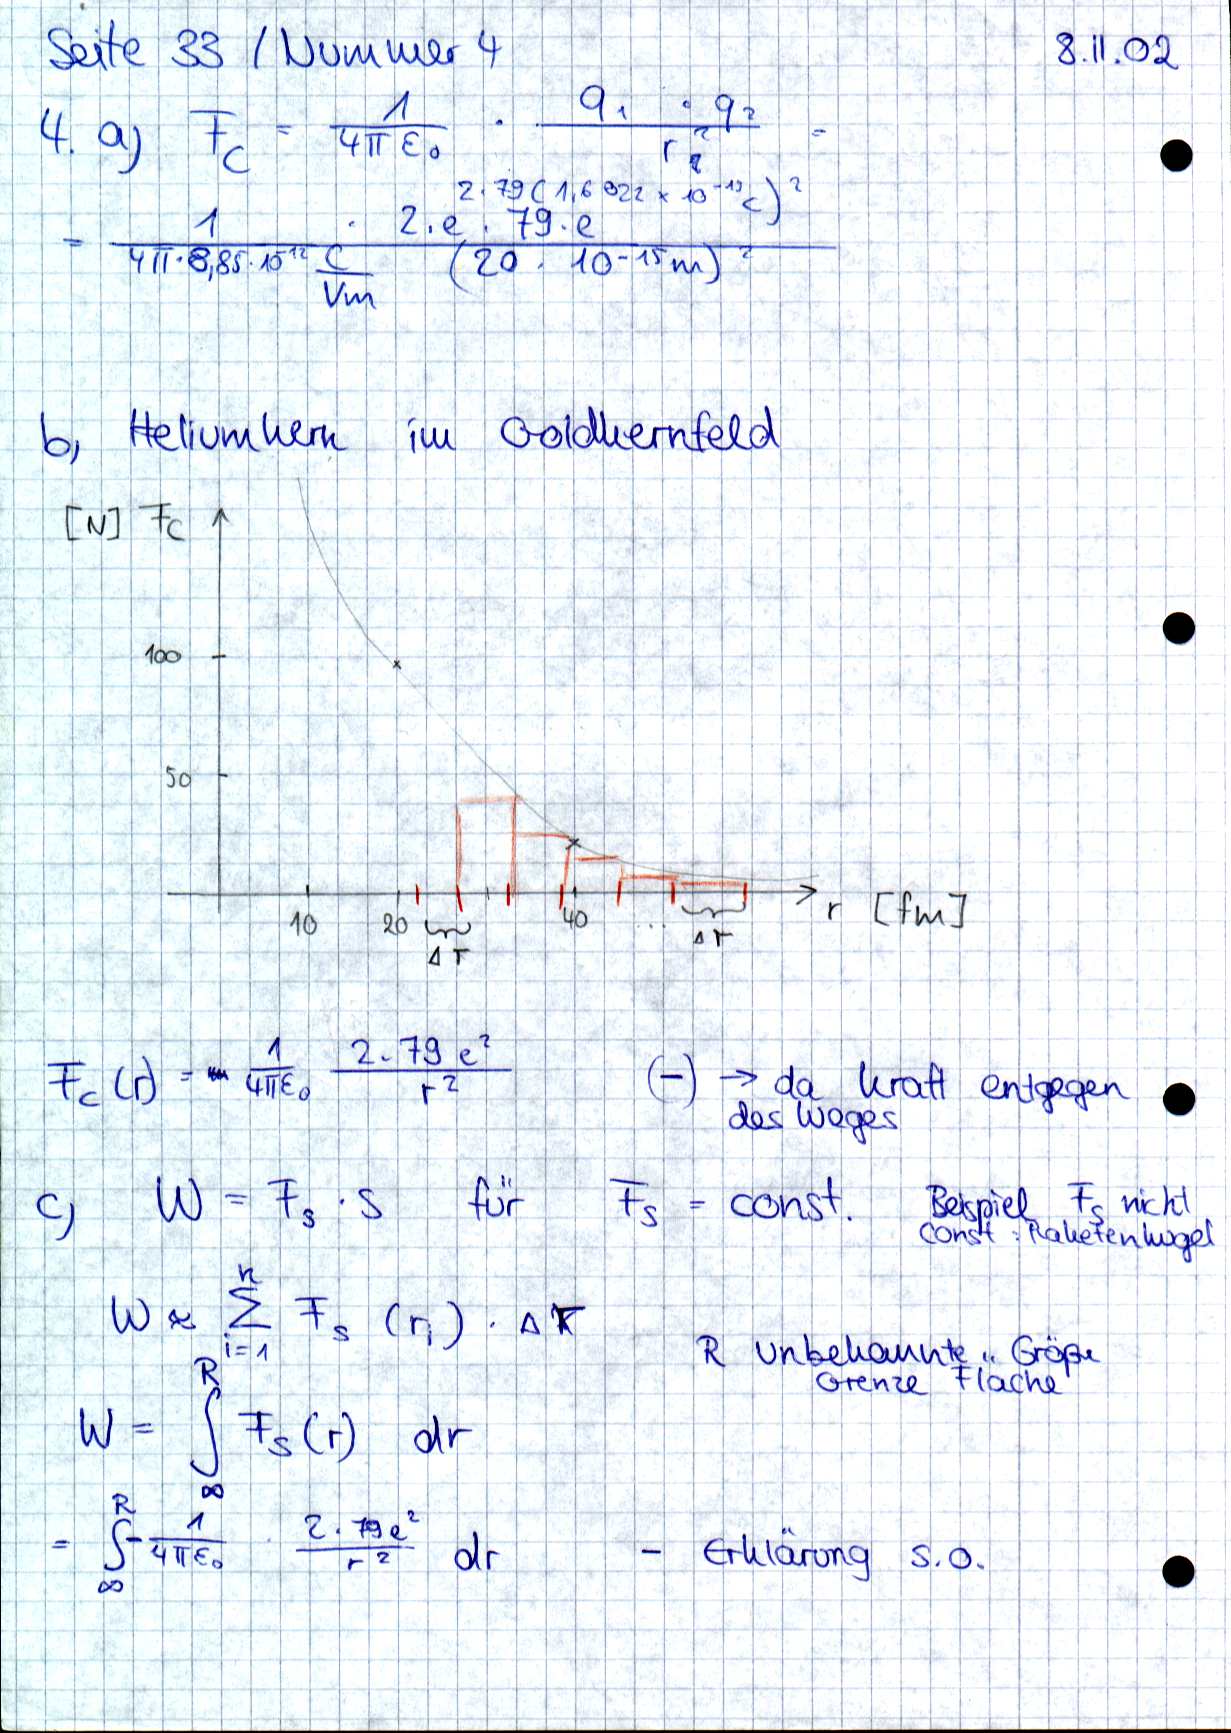 Seite 33 / Nummer 4 8.11.02
4. a) F_C = 1/(4πε₀) · (q₁ · q₂)/r² =
2·79(1,6022 × 10⁻¹⁹C)²
= 1/(4π·8,85·10⁻¹² C/Vm) · (2·e · 79·e)/(20 · 10⁻¹⁵m)²
b, Heliumkern im Goldkernfeld
[N] F_C
100
50
10 20 40 ... r [fm]
Δr Δr
F_C(r) = - 1/(4πε₀) (2·79 e²)/r² (-) → da Kraft entgegen
des Weges
c, W = F_s · s für F_s = const. Beispiel F_s nicht
const : Raketenkugel
W ≈ Σ_{i=1}^{n} F_s (r_i) · Δr
R unbekannte Größe
Grenze Fläche
W = ∫_∞^R F_s(r) dr
= ∫_∞^R - 1/(4πε₀) · (2·79e²)/r² dr - Erklärung s.o.